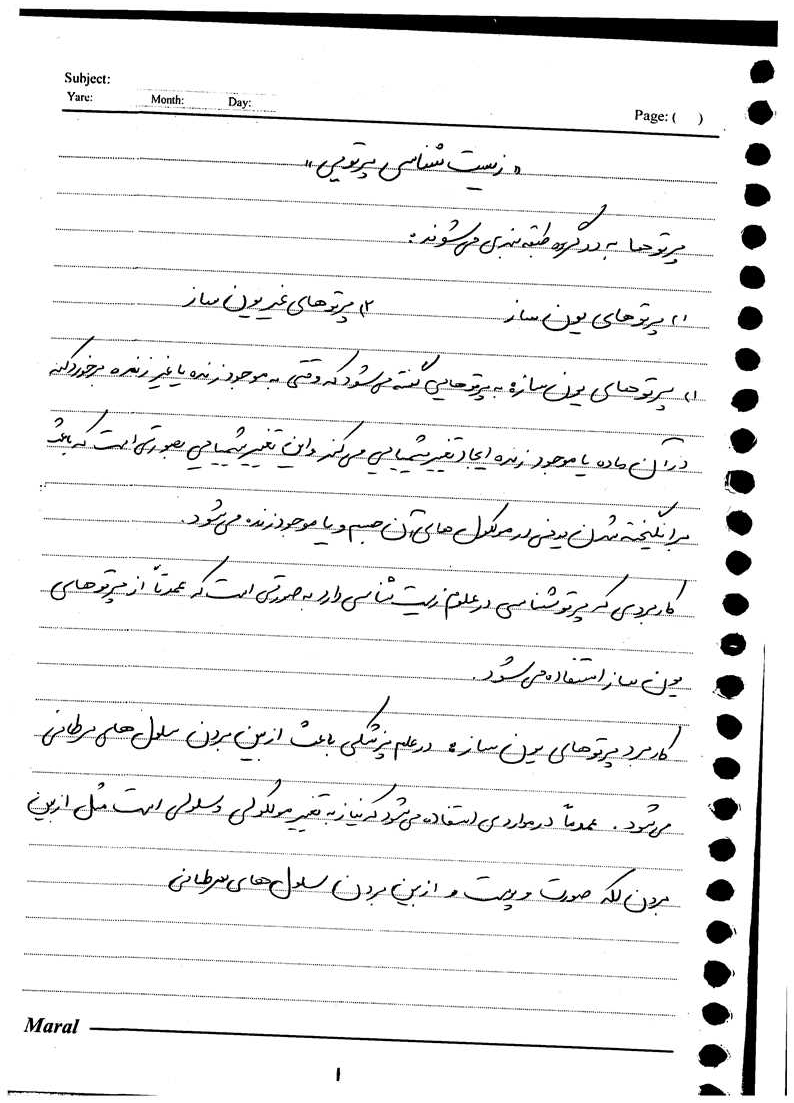 Subject:
Yare: Month: Day:
Page: ( )
« زیست شناسی پرتویی »
پرتوها به دو گروه طبقه بندی می شوند:
۱) پرتوهای یون ساز ۲) پرتوهای غیر یون ساز
۱) پرتوهای یون ساز: به پرتوهایی گفته می شود که وقتی به موجود زنده یا غیر زنده برخورد کند
در آن ماده یا موجود زنده ایجاد تغییر شیمیایی می کند و این تغییر شیمیایی بصورتی است که باعث
برانگیخته شدن یونی در مولکول های آن جسم و یا موجود زنده می شود.
کاربردی که پرتوشناسی در علوم زیست شناسی دارد به صورتی است که عمدتاً از پرتوهای
یون ساز استفاده می شود.
کاربرد پرتوهای یون ساز: در علم پزشکی باعث از بین بردن سلول های سرطانی
می شود. عمدتاً در مواردی استفاده می شود که نیاز به تغییر مولکولی و سلولی است مثل از بین
بردن لکه صورت و پوست و از بین بردن سلول های سرطانی
Maral
1